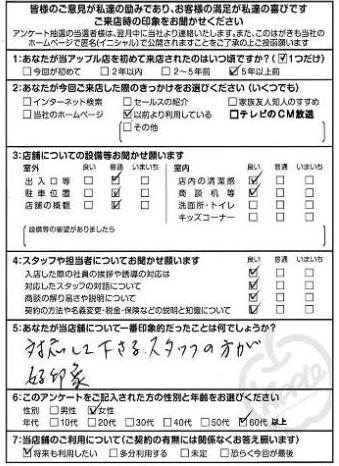 皆様のご意見が私達の励みであり、お客様の満足が私達の喜びです
ご来店時の印象をお聞かせください
アンケート抽選の当選者様は、翌月中に当社より連絡いたします。また、このはがきも当社の
ホームページで匿名(イニシャル)で公開されますことをご了承の上ご投函願います
1:あなたが当アップル店を初めて来店されたのはいつ頃ですか?(☑1つだけ)
□今回が初めて □2年以内 □2~5年前 ☑5年以上前
2:あなたが今回ご来店した際のきっかけをお選びください(いくつでも)
□インターネット検索 □セールスの紹介 □家族友人知人のすすめ
□当社のホームページ ☑以前より利用している □テレビのCM放送
□その他
3:店舗についての設備等お聞かせ願います
室外 良い 普通 いまいち 室内 良い 普通 いまいち
出入口等 □ ☑ □ 店内の清潔感 ☑ □ □
駐車位置 □ ☑ □ 商談机等 ☑ □ □
店舗の概観 □ ☑ □ 洗面所・トイレ □ □ □
キッズコーナー □ □ □
設備等の要望がありましたら
4:スタッフや担当者についてお聞かせ願います 良い 普通 いまいち
入店した際の社員の挨拶や誘導の対応は ☑ □ □
対応したスタッフの対話について ☑ □ □
商談の解り易さや説明について ☑ □ □
契約の方法や名義変更・税金・保険などの説明と知識について ☑ □ □
5:あなたが当店舗について一番印象的だったことは何でしょうか?
対応して下さる、スタッフの方が
好印象
6:このアンケートをご記入された方の性別と年齢をお選びください
性別 □男性 ☑女性
年代 □10代 □20代 □30代 □40代 □50代 ☑60代以上
7:当店舗のご利用について(ご契約の有無には関係なくお答え願います)
☑将来も利用したい □多分利用する □未定 □恐らく今回が最後